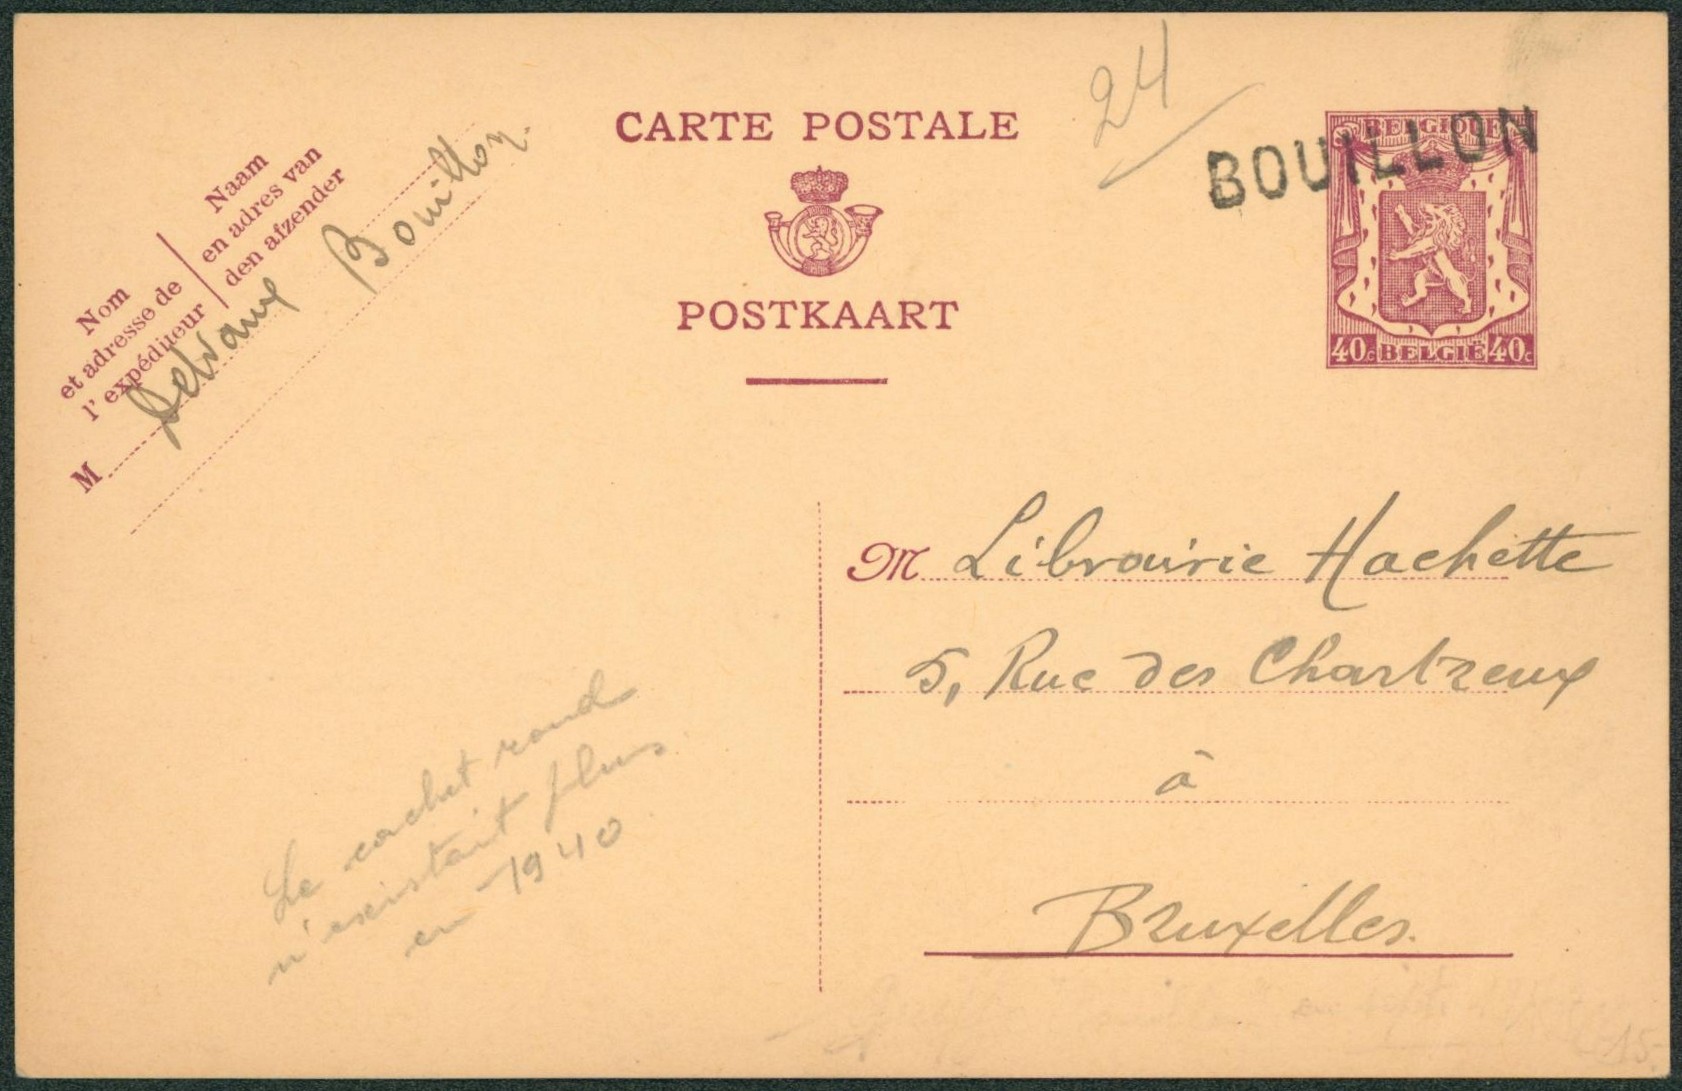 CARTE POSTALE
POSTKAART
24
BOUILLON
BELGIQUE
40c BELGIË 40c
Nom
et adresse de
l'expéditeur
Naam
en adres van
den afzender
M Delvaux Bouillon.
M Librairie Hachette
5, Rue des Chartreux
à
Bruxelles.
Le cachet rond
n'existait plus
en 1940.
15-